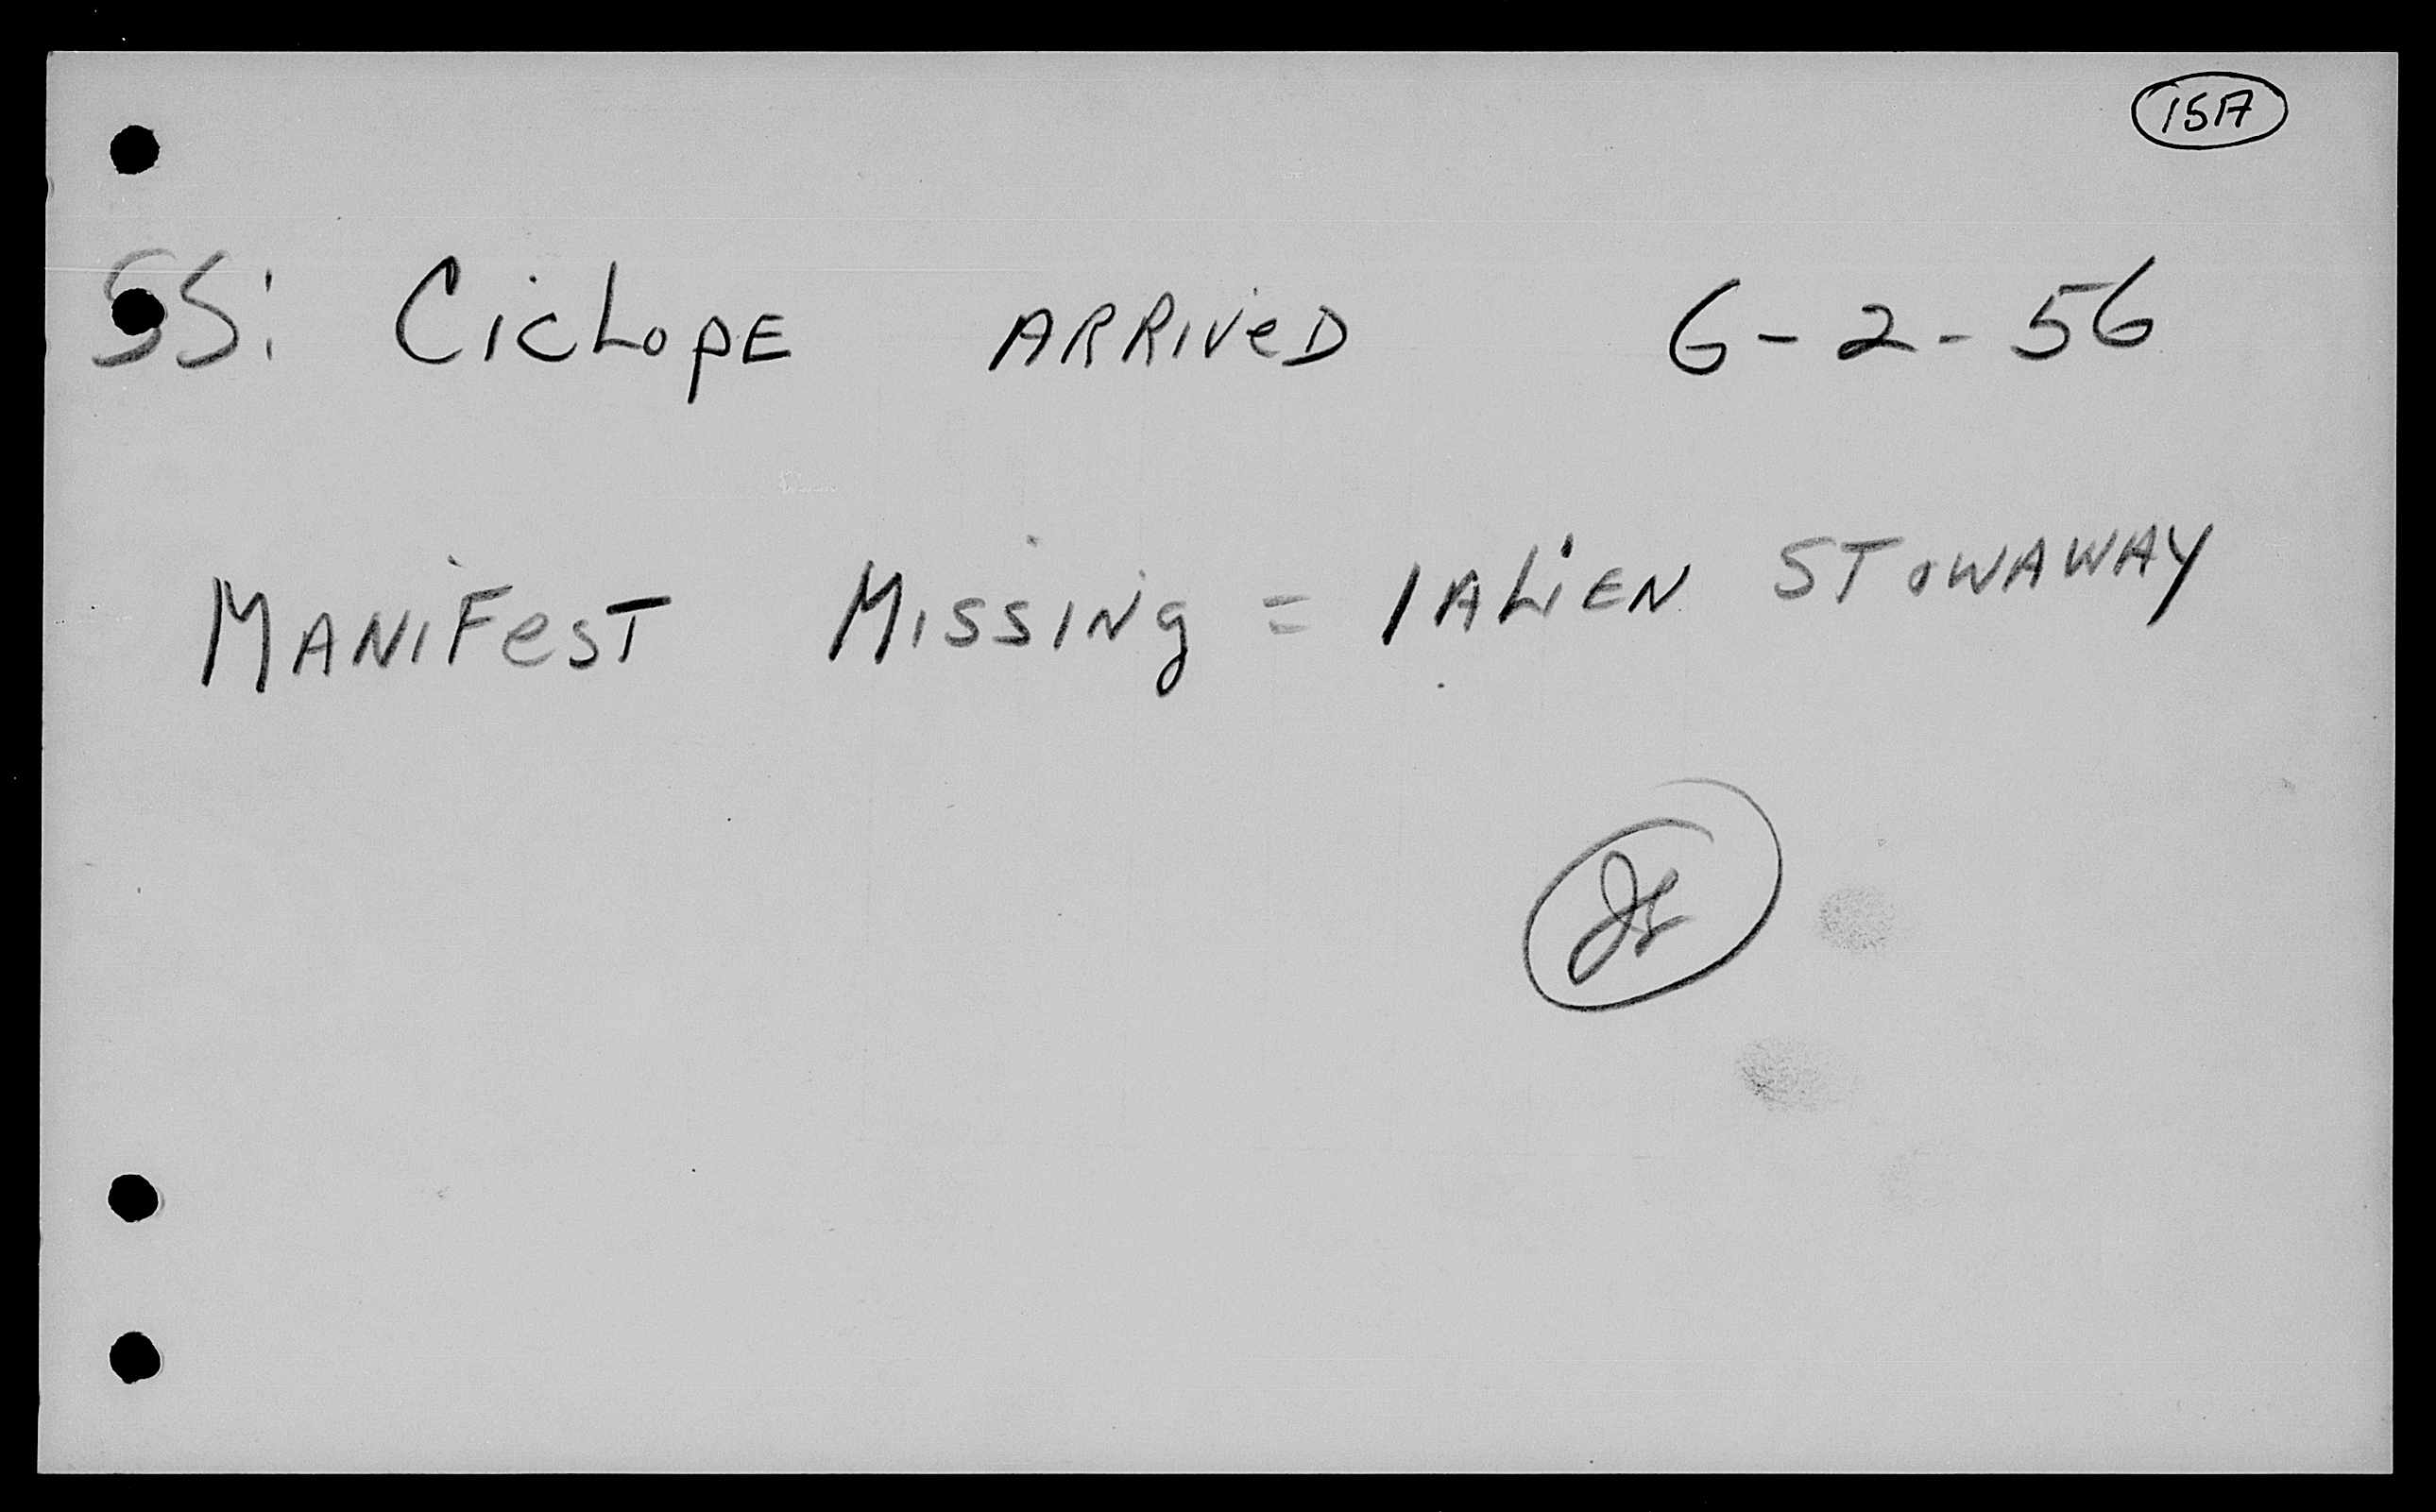 15A
SS: CicLopE ARRIVeD 6-2-56
MANiFesT MissiNg = 1 ALiEN STowAWAY